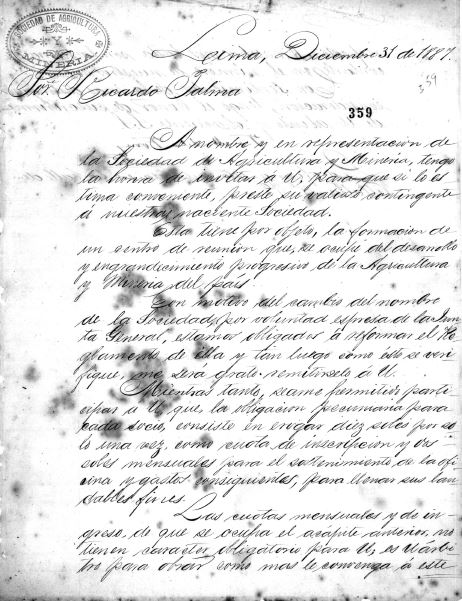 SOCIEDAD DE AGRICULTURA
Y
MINERIA
Lima, Diciembre 31 de 1887.
359
Sor. Ricardo Palma
359
A nombre y en representacion de
la Sociedad de Agricultura y Mineria, tengo
la honra de invitar á U, para que si lo es
tima conveniente, preste su valioso contingente
á nuestra naciente Sociedad.
Esta tiene por objeto, la formacion de
un centro de reunion que, se ocupe del desarrollo
y engrandecimiento progresivo de la Agricultura
y Mineria del pais
Con motivo del cambio del nombre
de la Sociedad, por voluntad espresa de la Jun
ta General, estamos obligados á reformar el Re
glamento de ella y tan luego como esto se veri
fique, me será grato remitirselo á U.
Mientras tanto, seame permitido parti
cipar á U que la obligacion pecuniaria para
cada socio, consiste en erogar diez soles por so
lo una vez, como cuota de inscripcion y dos
soles mensuales para el sostenimiento de la ofi
cina y gastos consiguientes, para llenar sus lau
dables fines.
Las cuotas mensuales y de in
greso, de que se ocupa el acápite anterior, no
tienen caracter obligatorio para U, es U árbi
tro para obrar como mas le convenga á este